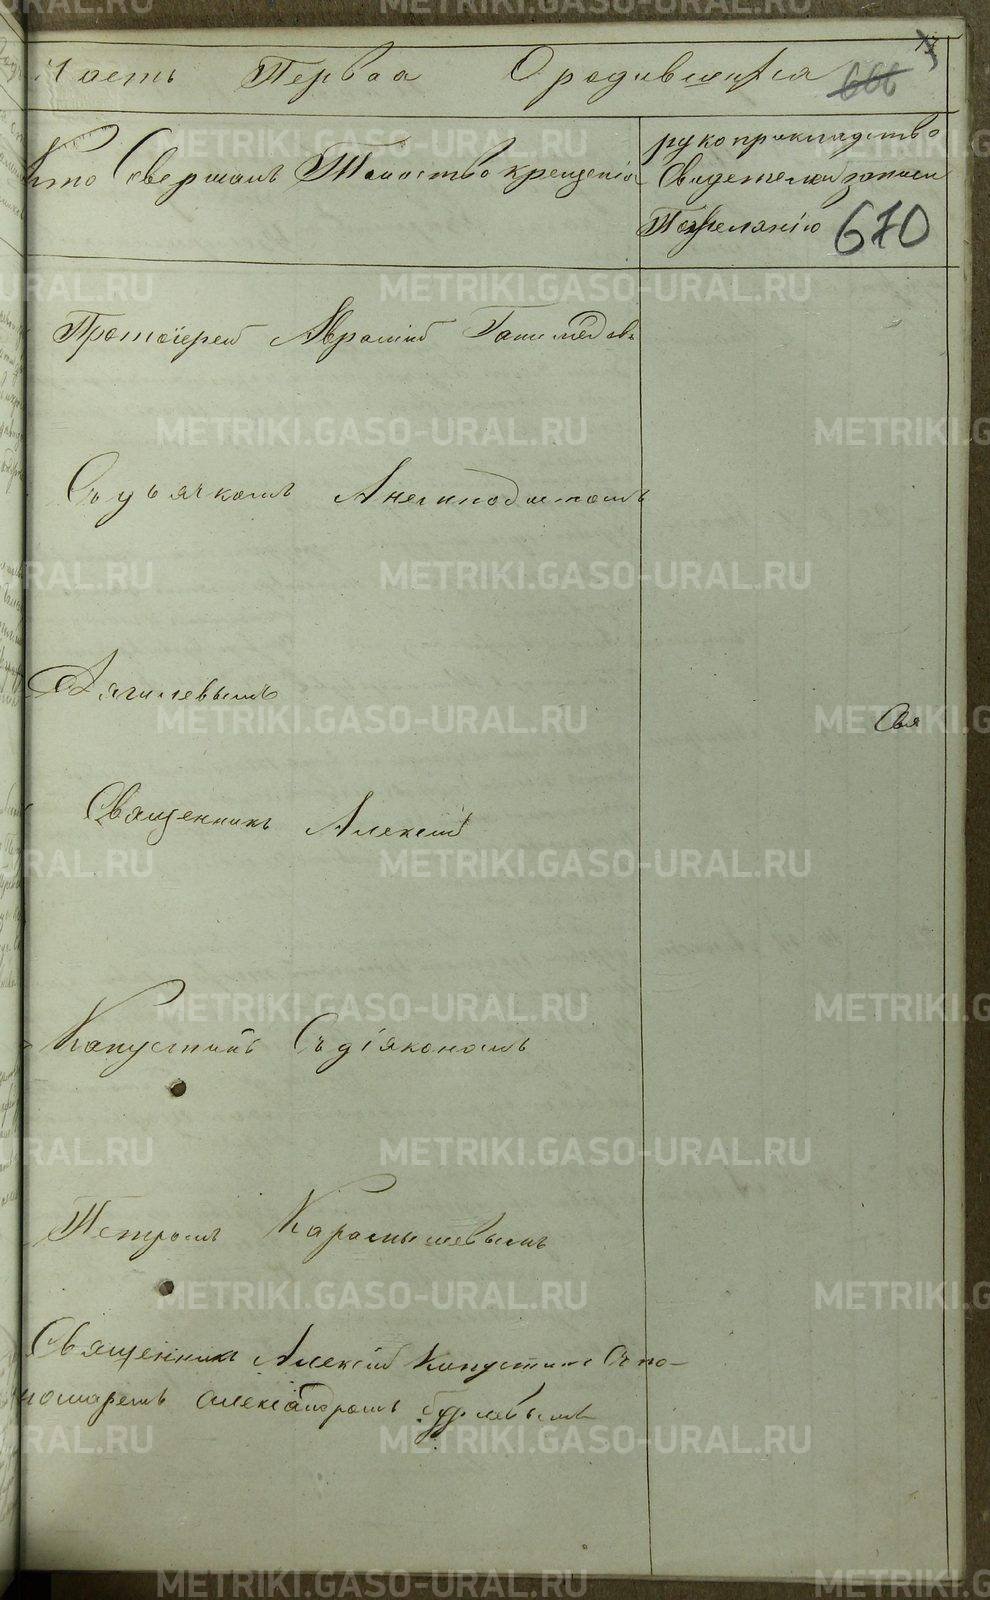 Часть Перваа О родившихся 666
Кто Совершалъ Таинство крещенія
рукоприкладство
Свидетелей записи
По желанію 670
Протоіерей Авраамій Ганимедовъ
Съ дьячкомъ Анемподистомъ
Дягилевымъ
Свя
Священникъ Алексій
Капустинъ Съ діякономъ
Петромъ Карамышевымъ
Священникъ Алексій Капустинъ Съ по-
номаремъ Александромъ
METRIKI.GASO-URAL.RU